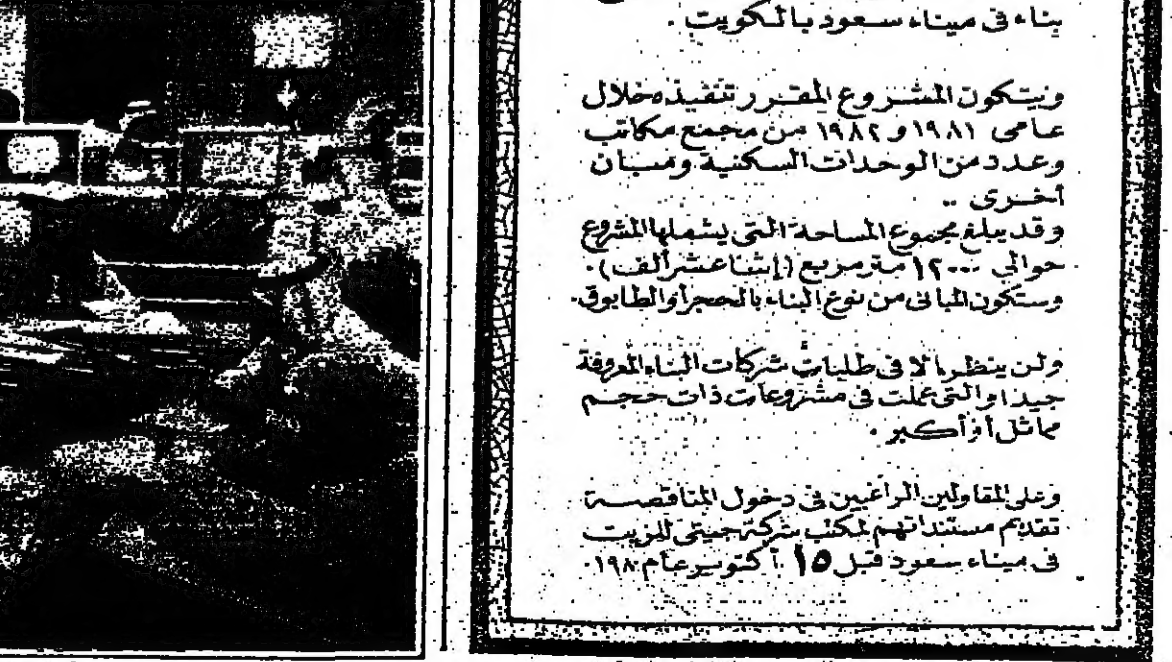 بناء فى ميناء سعود بالكويت .
ويتكون المشروع المقرر تنفيذه خلال
عامى ١٩٨١ و ١٩٨٢ من مجمع مكاتب
وعدد من الوحدات السكنية ومبان
أخرى ..
وقد يبلغ مجموع المساحة التى يشملها المشروع
حوالي ١٢٠٠٠ متر مربع (إثنا عشر ألف) .
وستكون المبانى من نوع البناء بالحجر أو الطابوق .
ولن ينظر إلا فى طلبات شركات البناء المعروفة
جيدا والتى عملت فى مشروعات ذات حجم
مماثل أو أكبر .
وعلى المقاولين الراغبين فى دخول المناقصة
تقديم مستنداتهم لمكتب شركة جيتى للزيت
فى ميناء سعود قبل ١٥ أكتوبر عام ١٩٨٠ .